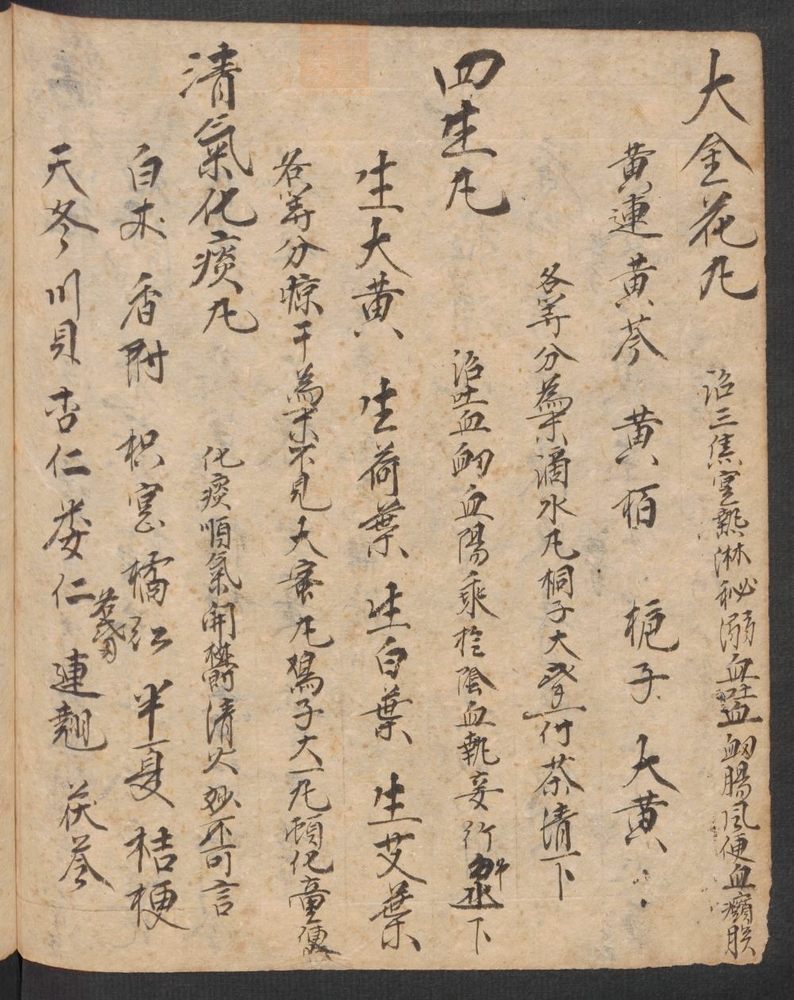 大金花丸 治三焦實熱淋秘溺血吐血衂腸風便血癲朕
黃連 黃芩 黃栢 梔子 大黃
各等分為末滴水丸桐子大 付茶清下
四生丸 治吐血衂血陽乘於陰血執妄行 下
生大黃 生荷葉 生白葉 生艾葉
各等分惊干為末不見火蜜丸鴉子大一丸頓化童便
清氣化痰丸 化痰順氣開欝清火妙不可言
白朮 香附 枳 橘红 半夏 桔梗
天苳 川貝 杏仁 婁仁 連翹 茯苓